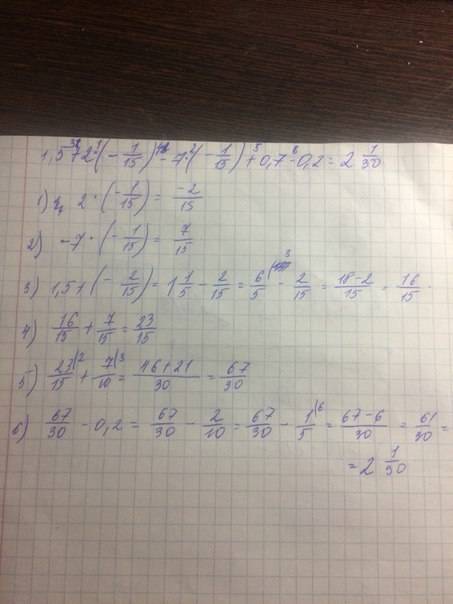 1,5 + 2 · (-1/15) - 7 · (-1/15) + 0,7 - 0,2 = 2 1/30
1) 2 · (-1/15) = -2/15
2) -7 · (-1/15) = 7/15
3) 1,5 + (-2/15) = 1 1/5 - 2/15 = 6/5 - 2/15 = 18-2/15 = 16/15
4) 16/15 + 7/15 = 23/15
5) 23/15 + 7/10 = 46+21/30 = 67/30
6) 67/30 - 0,2 = 67/30 - 2/10 = 67/30 - 1/5 = 67-6/30 = 61/30 =
= 2 1/30